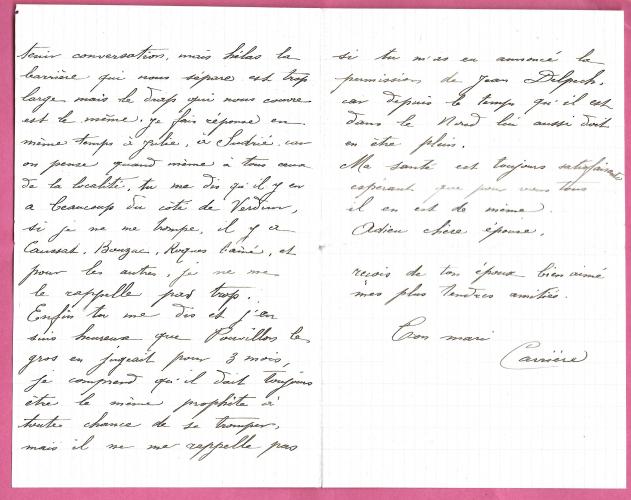 tenir conversation, mais hélas la
barrière qui nous sépare est trop
large mais le drap qui nous couvre
est le même, je fais réponse en
même temps à à Sudrié, car
on pense quand même à tous ceux
de la localité, tu me dis qu'il y en
a beaucoup du côté de Verdun,
si je ne me trompe, il y a
Caussat, Bouzac, Roques l'aîné, et
pour les autres, je ne me
le rappelle pas trop.
Enfin tu me dis et j'en
suis heureux que Pouvillon le
gros en jugeait pour 3 mois,
je comprend qu'il doit toujours
être le même prophète à
toute chance de se tromper,
mais il ne me rappelle pas
si tu m'as en annoncé la
permission de Jean Delpech,
car depuis le temps qu'il est
dans le Nord lui aussi doit
en être plein.
Ma santé est toujours satisfaisante
espérant que pour vous tous
il en est de même.
Adieu chère épouse,
reçois de ton époux bien aimé
mes plus tendres amitiés.
Ton mari
Carrière